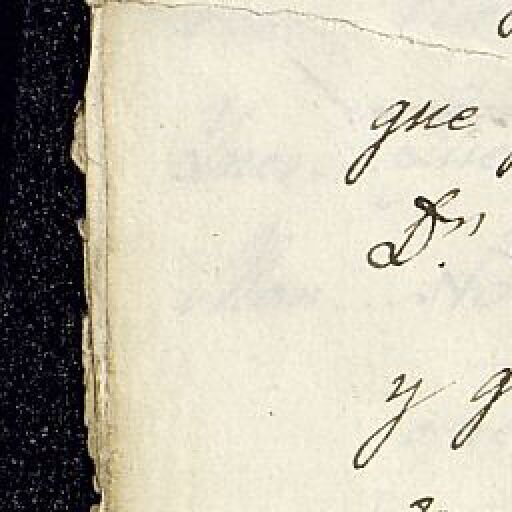 que
D.n
y q